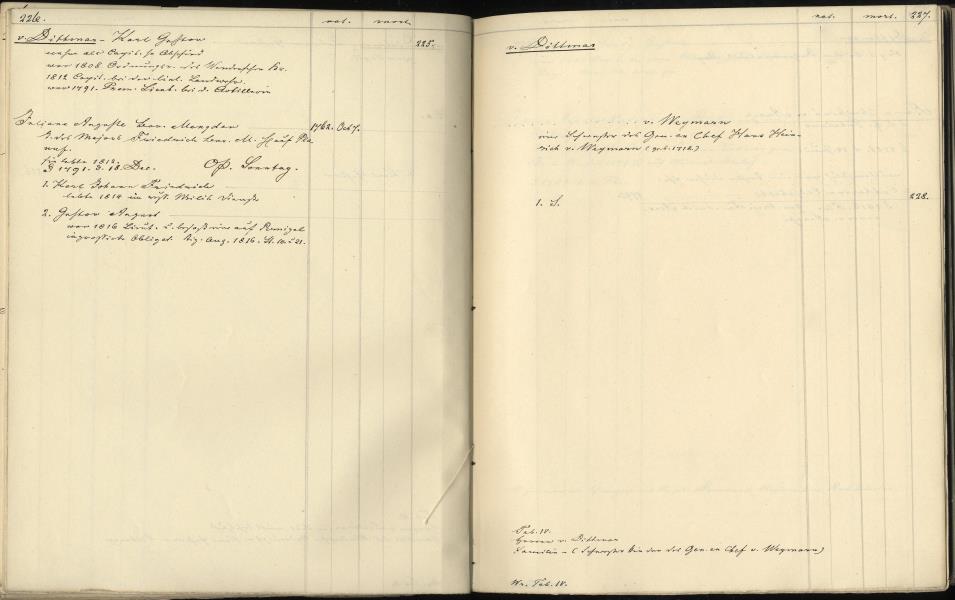 226.
nat. mort.
v. Dittmar - Karl Gustav
225.
nahm als Capit. s. Abschied
war 1808 Ordnungsr. des Wendenschen Kr.
1812 Capit. bei der livl. Landwehr
war 1791. Prem. Lieut. bei d. Artillerie
Juliane Auguste Bar. Mengden 1762. Oct 7.
T. des Majors Friedrich Bar. M.
sie lebte 1812.
1791. d. 18. Dec. Sonntag.
1. Karl Johann Friedrich
lebte 1814 im russ. Militär Dienste
2. Gustav August
war 1816 Lieut. u. besass eine auf
ingrossirte Obligat. Aug. 1816. St. 10. u 21.
nat. mort. 227.
v. Dittmar
v. Weymarn
eine Schwester des Gen. en Chef Hans Hein-
rich v. Weymarn (geb. 1718.)
1. S. 228.
Tab. IV.
Herren v. Dittmar
Familie - (Schwester Kinder des Gen. en Chef v. Weymarn)
Tab. IV.